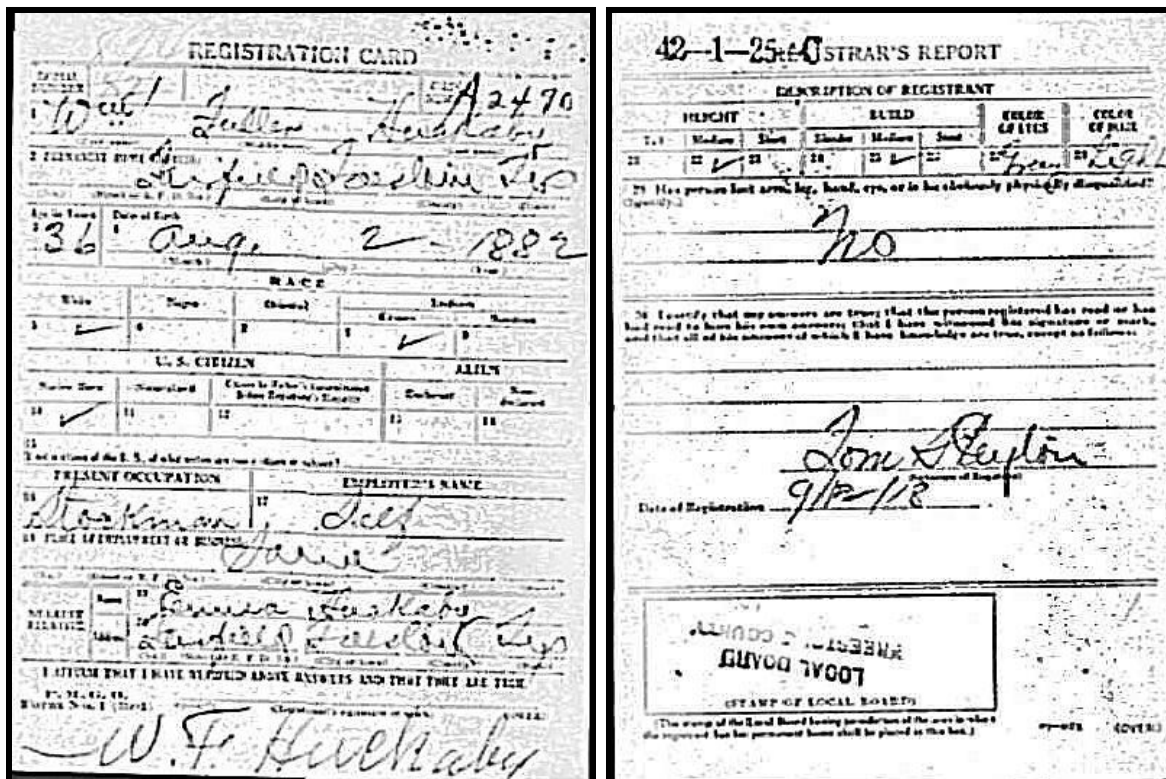 REGISTRATION CARD
SERIAL NUMBER 821
ORDER NUMBER A2470
1 Will Fuller Huckaby
2 PERMANENT HOME ADDRESS
Freestone Tex
Age in Years Date of Birth
3 36 4 Aug. 2 - 1882
(Month) (Day) (Year)
RACE
White Negro Oriental Indian
Citizen Noncitizen
5 ✓ 6 7 8 ✓ 9
U. S. CITIZEN ALIEN
Native Born Naturalized Citizen by Father's Naturalization Before Registrant's Majority Declarant Non-declarant
10 ✓ 11 12 13 14
15
If not a citizen of the U. S., of what nation are you a citizen or subject?
PRESENT OCCUPATION EMPLOYER'S NAME
16 Stockman 17 Self
18 PLACE OF EMPLOYMENT OR BUSINESS
Same
NEAREST RELATIVE
Name 19 Emma Huckaby
Address 20 Freestone Tex
I AFFIRM THAT I HAVE VERIFIED ABOVE ANSWERS AND THAT THEY ARE TRUE
P. M. G. O.
Form No. 1 (Red) (Registrant's signature or mark) (OVER)
W. F. Huckaby
42-1-25 C REGISTRAR'S REPORT
DESCRIPTION OF REGISTRANT
HEIGHT BUILD COLOR OF EYES COLOR OF HAIR
Tall Medium Short Slender Medium Stout
21 22 ✓ 23 24 25 ✓ 26 27 28 Light
29 Has person lost arm, leg, hand, eye, or is he obviously physically disqualified?
(Specify.)
No
30 I certify that my answers are true; that the person registered has read or has
had read to him his own answers; that I have witnessed his signature or mark,
and that all of his answers of which I have knowledge are true, except as follows:
Tom
(Signature of Registrar)
Date of Registration 9/12/18
LOCAL BOARD
FREESTONE COUNTY
(STAMP OF LOCAL BOARD)
(The stamp of the Local Board having jurisdiction of the area in which
the registrant has his permanent home shall be placed in this box.)
(OVER)